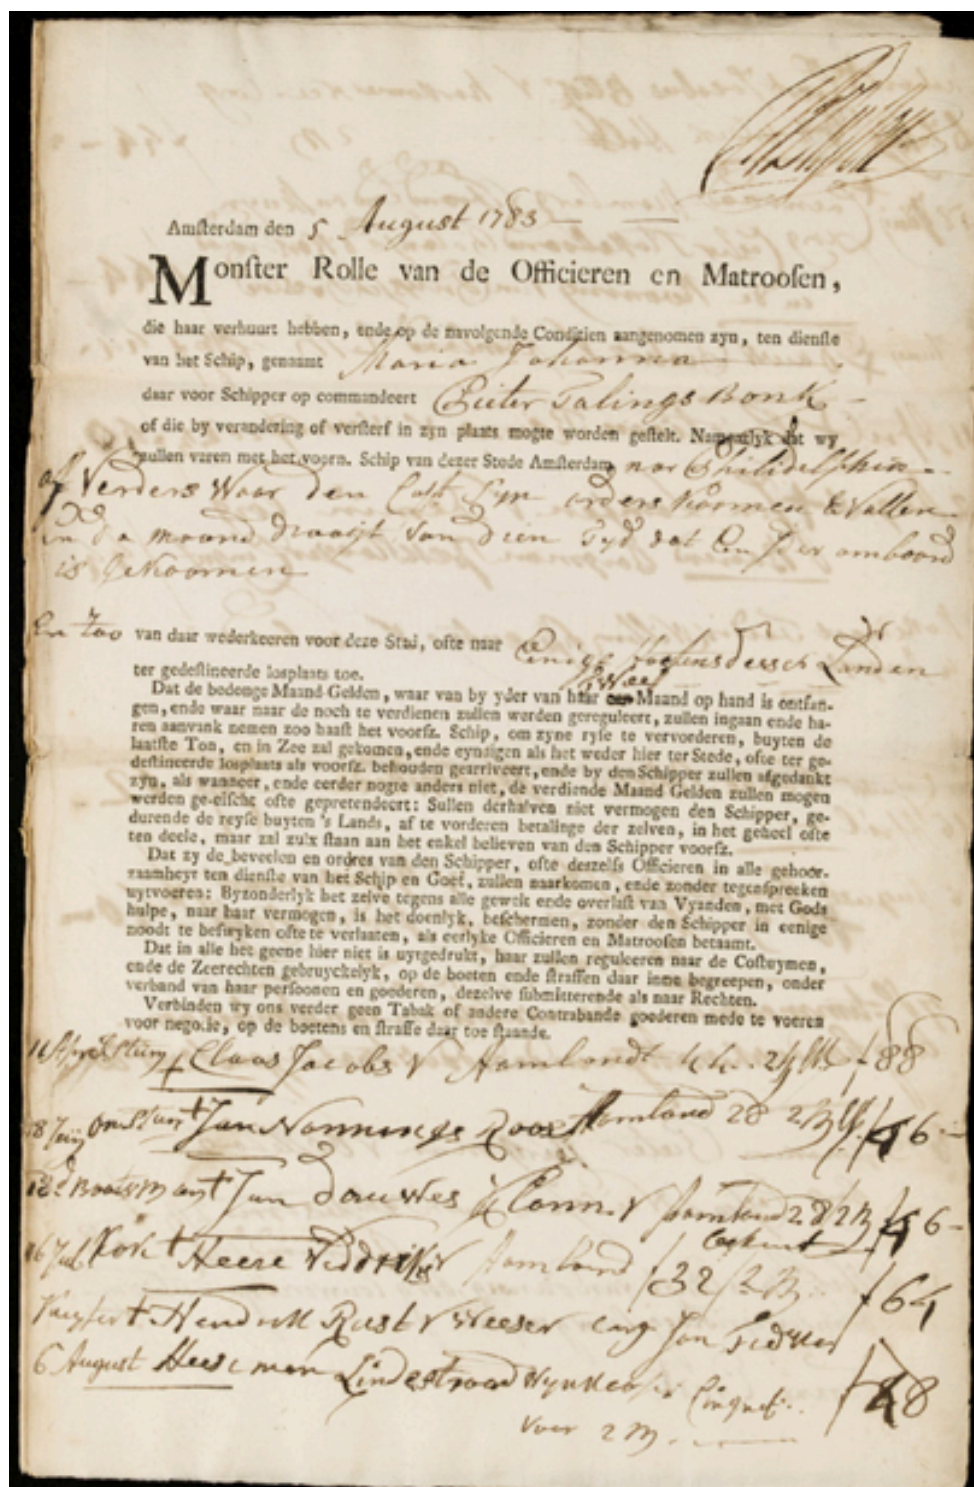 Amsterdam den 5 August 1783
Monster Rolle van de Officieren en Matroosen,
die haar verhuurt hebben, ende op de navolgende Conditien aangenomen zyn, ten dienste
van het Schip, genaamt Maria Johanna
daar voor Schipper op commandeert Pieter Talings Bonk
of die by verandering of versterf in zyn plaats mogte worden gestelt. Namentlyk dat wy
zullen varen met het voorn. Schip van dezer Stede Amsterdam nar Philidelphia
of Verders Waar den Last Zyn orders Koomen te Vallen
En d a maand draagt van dien Tyd dat Een Jder an boord
is Gekoomen
En Zoo van daar wederkeeren voor deze Stad, ofte naar Eenige Landen
ter gedestineerde losplaats toe.
Dat de bedonge Maand-Gelden, waar van by yder van haar twee Maand op hand is ontfan-
gen, ende waar naar de noch te verdienen zullen werden gereguleert, zullen ingaan ende ha-
ren aanvank nemen zoo haast het voorsz. Schip, om zyne ryse te vervorderen, buyten de
laatste Ton, en in Zee zal gekomen, ende eyndigen als het weder hier ter Stede, ofte ter ge-
destineerde losplaats als voorsz. behouden gearriveert, ende by den Schipper zullen afgedankt
zyn, als wanneer, ende eerder nogte anders niet, de verdiende Maand Gelden zullen mogen
werden ge-eischt ofte gepretendeert: Sullen derhalven niet vermogen den Schipper, ge-
durende de reyse buyten 's Lands, af te vorderen betalinge der zelven, in het geheel ofte
ten deele, maar zal zulx staan aan het enkel believen van den Schipper voorsz.
Dat zy de beveelen en ordres van den Schipper, ofte deszelfs Officieren in alle gehoor-
zaamheyt ten dienste van het Schip en Goet, zullen naarkomen, ende zonder tegenspreeken
uytvoeren: Byzonderlyk het zelve tegens alle gewelt ende overlast van Vyanden, met Gods
hulpe, naar haar vermogen, is het doenlyk, beschermen, zonder den Schipper in eenige
noodt te beswyken ofte te verlaaten, als eerlyke Officieren en Matroosen betaamt.
Dat in alle het geene hier niet is uytgedrukt, haar zullen reguleeren naar de Costuymen,
ende de Zeerechten gebruyckelyk, op de boeten ende straffen daar inne begreepen, onder
verband van haar persoonen en goederen, dezelve submitterende als naar Rechten.
Verbinden wy ons verder geen Tabak of andere Contrabande goederen mede te voeren
voor negotie, op de boetens en straffe daar toe staande.
Stuurm + Claas Jacobs V Aamlandt 44 . 2 M f 88
18 Juny + Jan Nannings Roos Aamland 28 2 M f 56
Bootsman + Jan Douwes V Aamland 28 2 M f 56
16 July Kok + Heere V Aamland f 32 / 2 M f 64
Kuyper + Hendrik Rust V Weeser Jan
6 August Heere man Lindestraad f 48
Voor 2 M